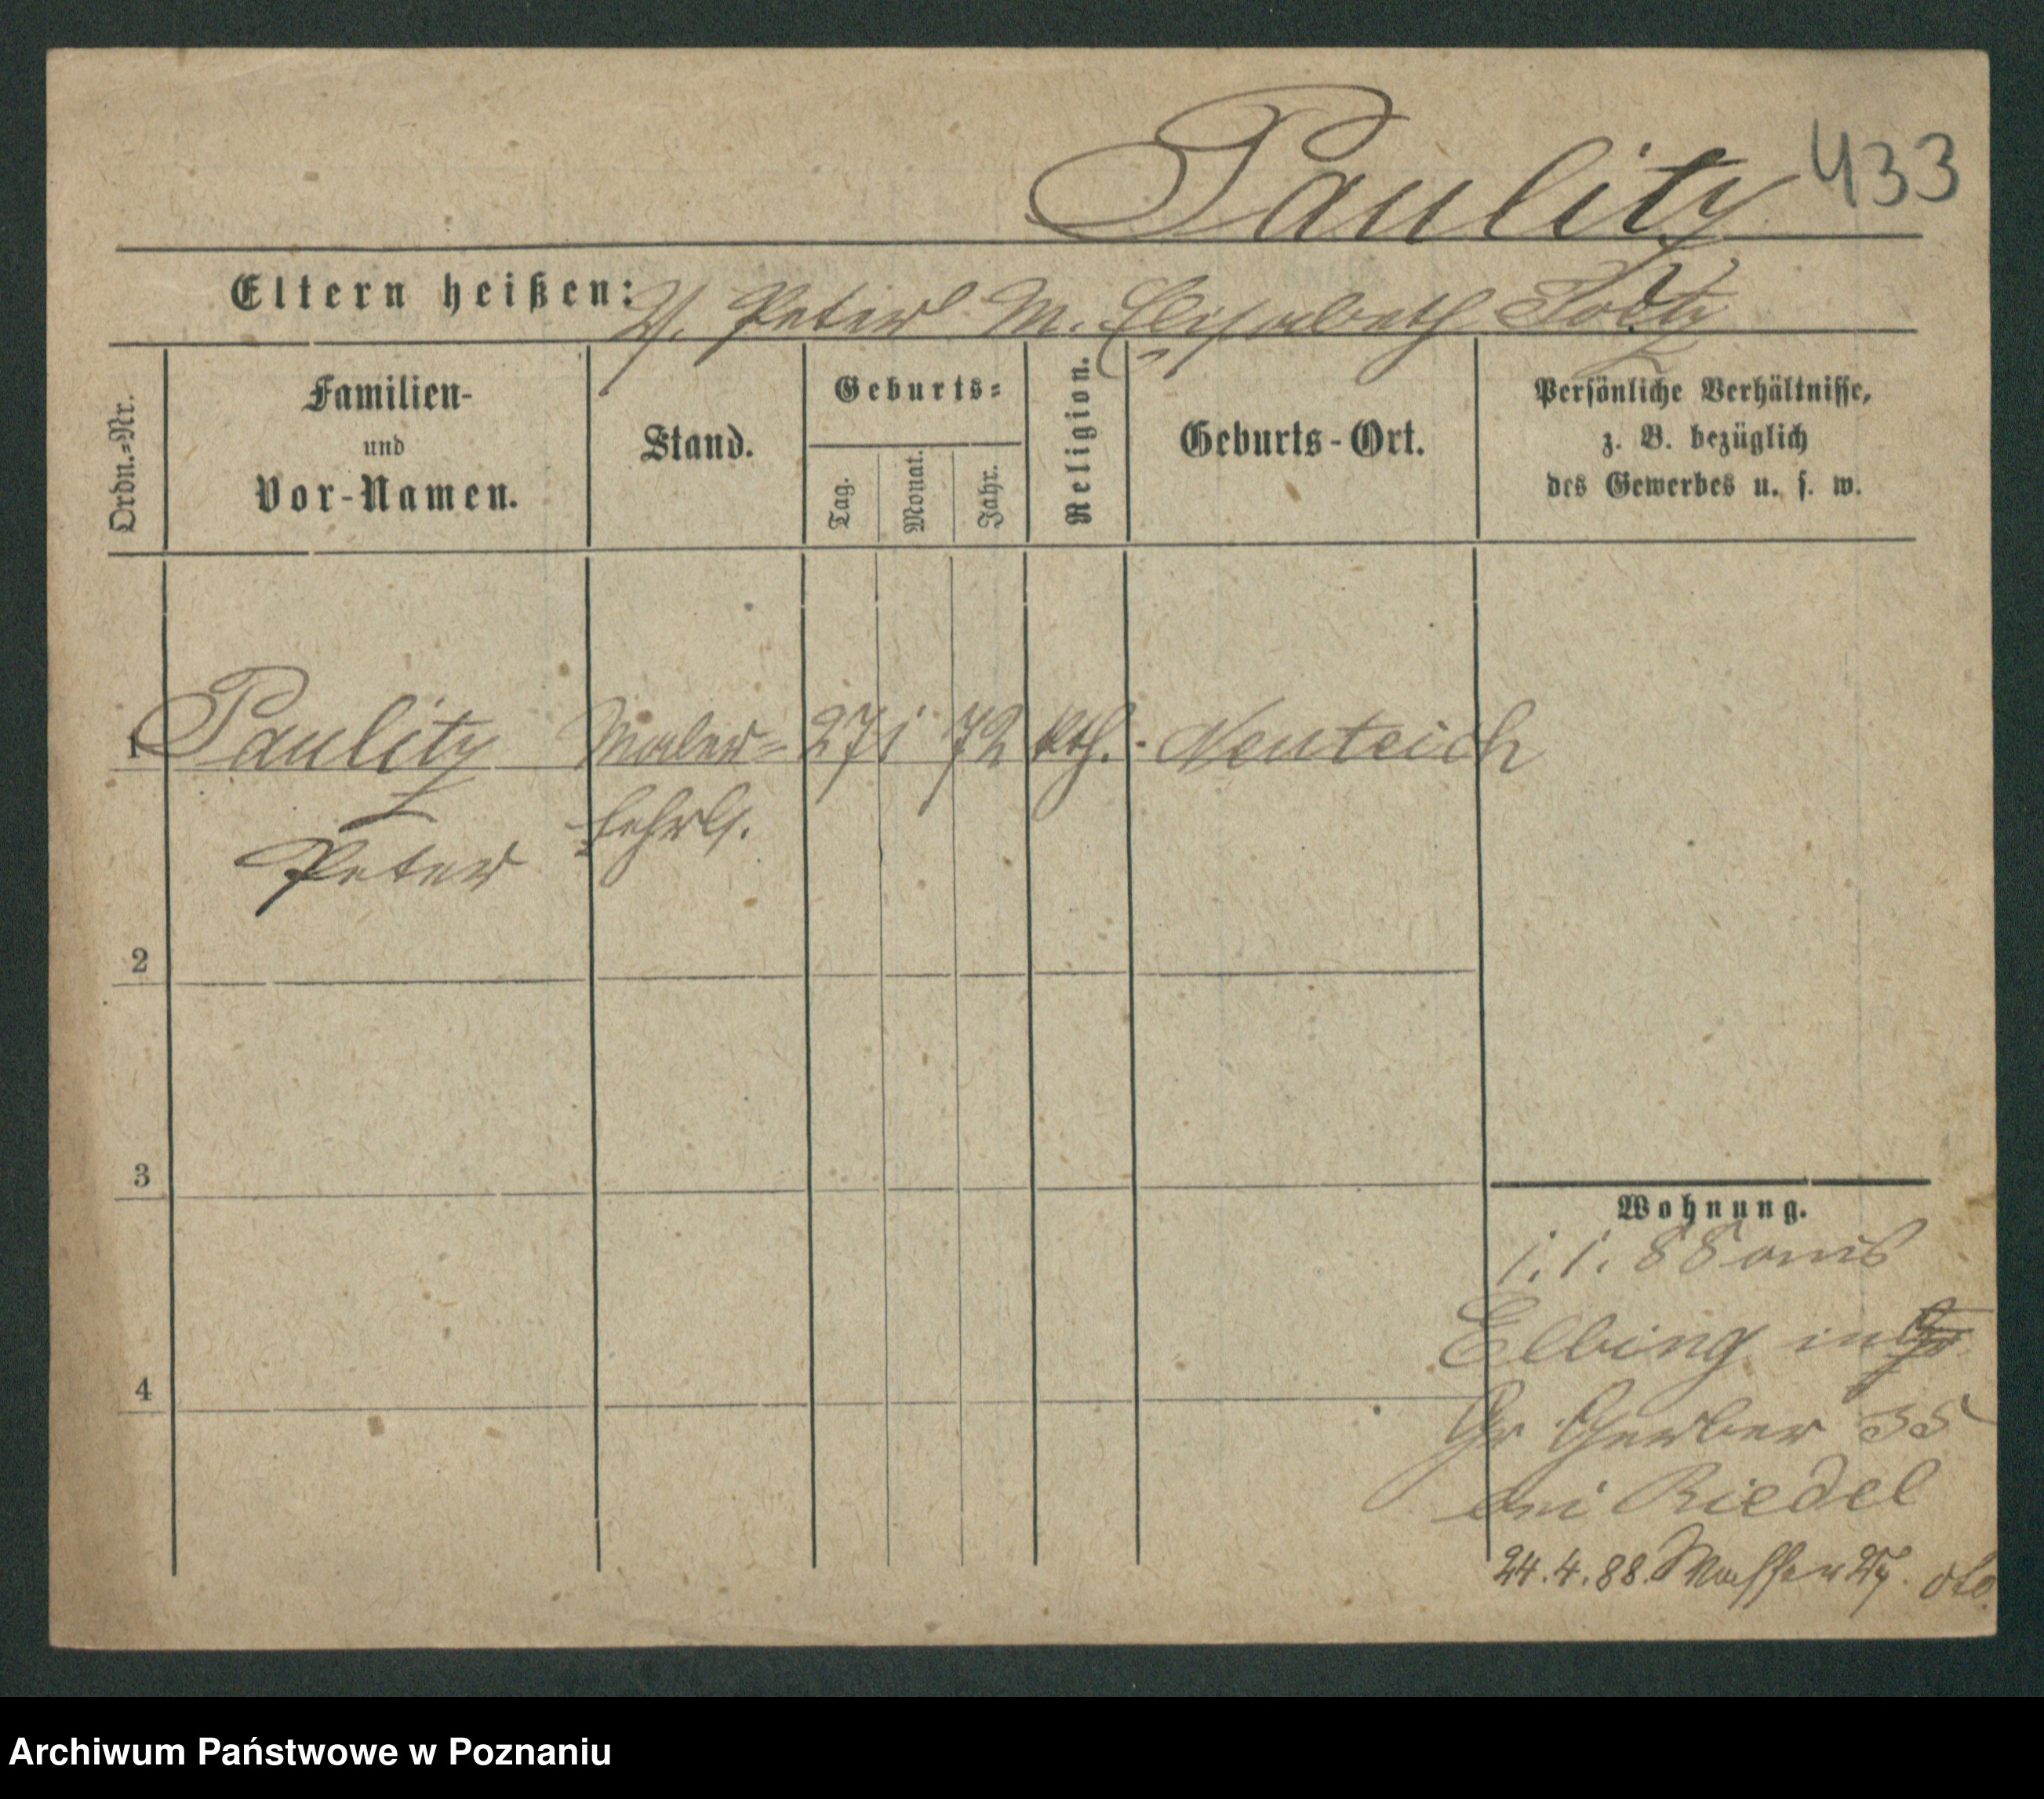 Paulitz 433
Eltern heißen: V. Peter M. Elisabeth
Ordn.-Nr.
Familien-
und
Vor-Namen.
Stand.
Geburts-
Tag.
Monat.
Jahr.
Religion.
Geburts-Ort.
Persönliche Verhältnisse,
z. B. bezüglich
des Gewerbes u. s. w.
1 Paulitz Maler- 27 1 72 kth. Neuteich
Peter lehrl.
2
3
4
Wohnung.
1. 1. 88 aus
Elbing in
Gr Gerber 35
bei Riedel
24. 4. 88. Wasser 27.
Archiwum Państwowe w Poznaniu